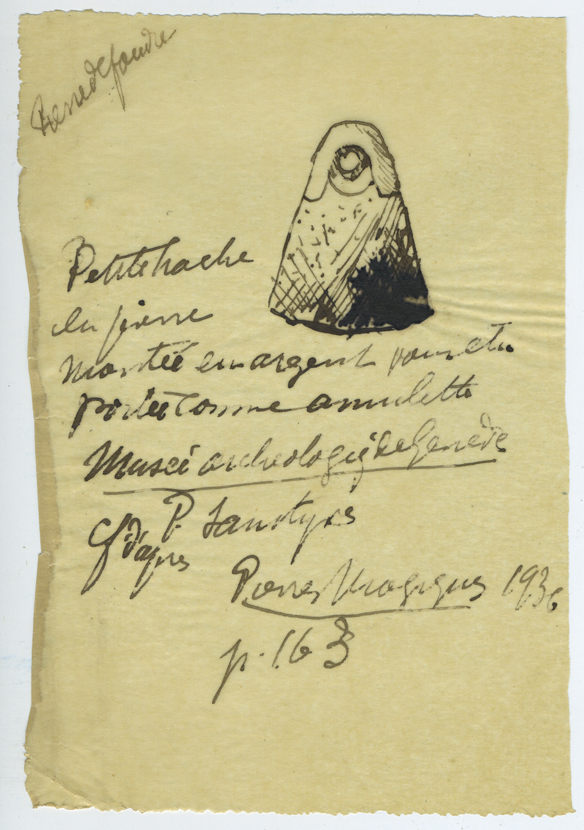 Pierre de foudre
Petite hache
en pierre
montée en argent pour etre
portée comme amulette
Musée archeologiq de Genève
Cf d'apres P. Saintyves
Pierres Magiques 1936
p. 163